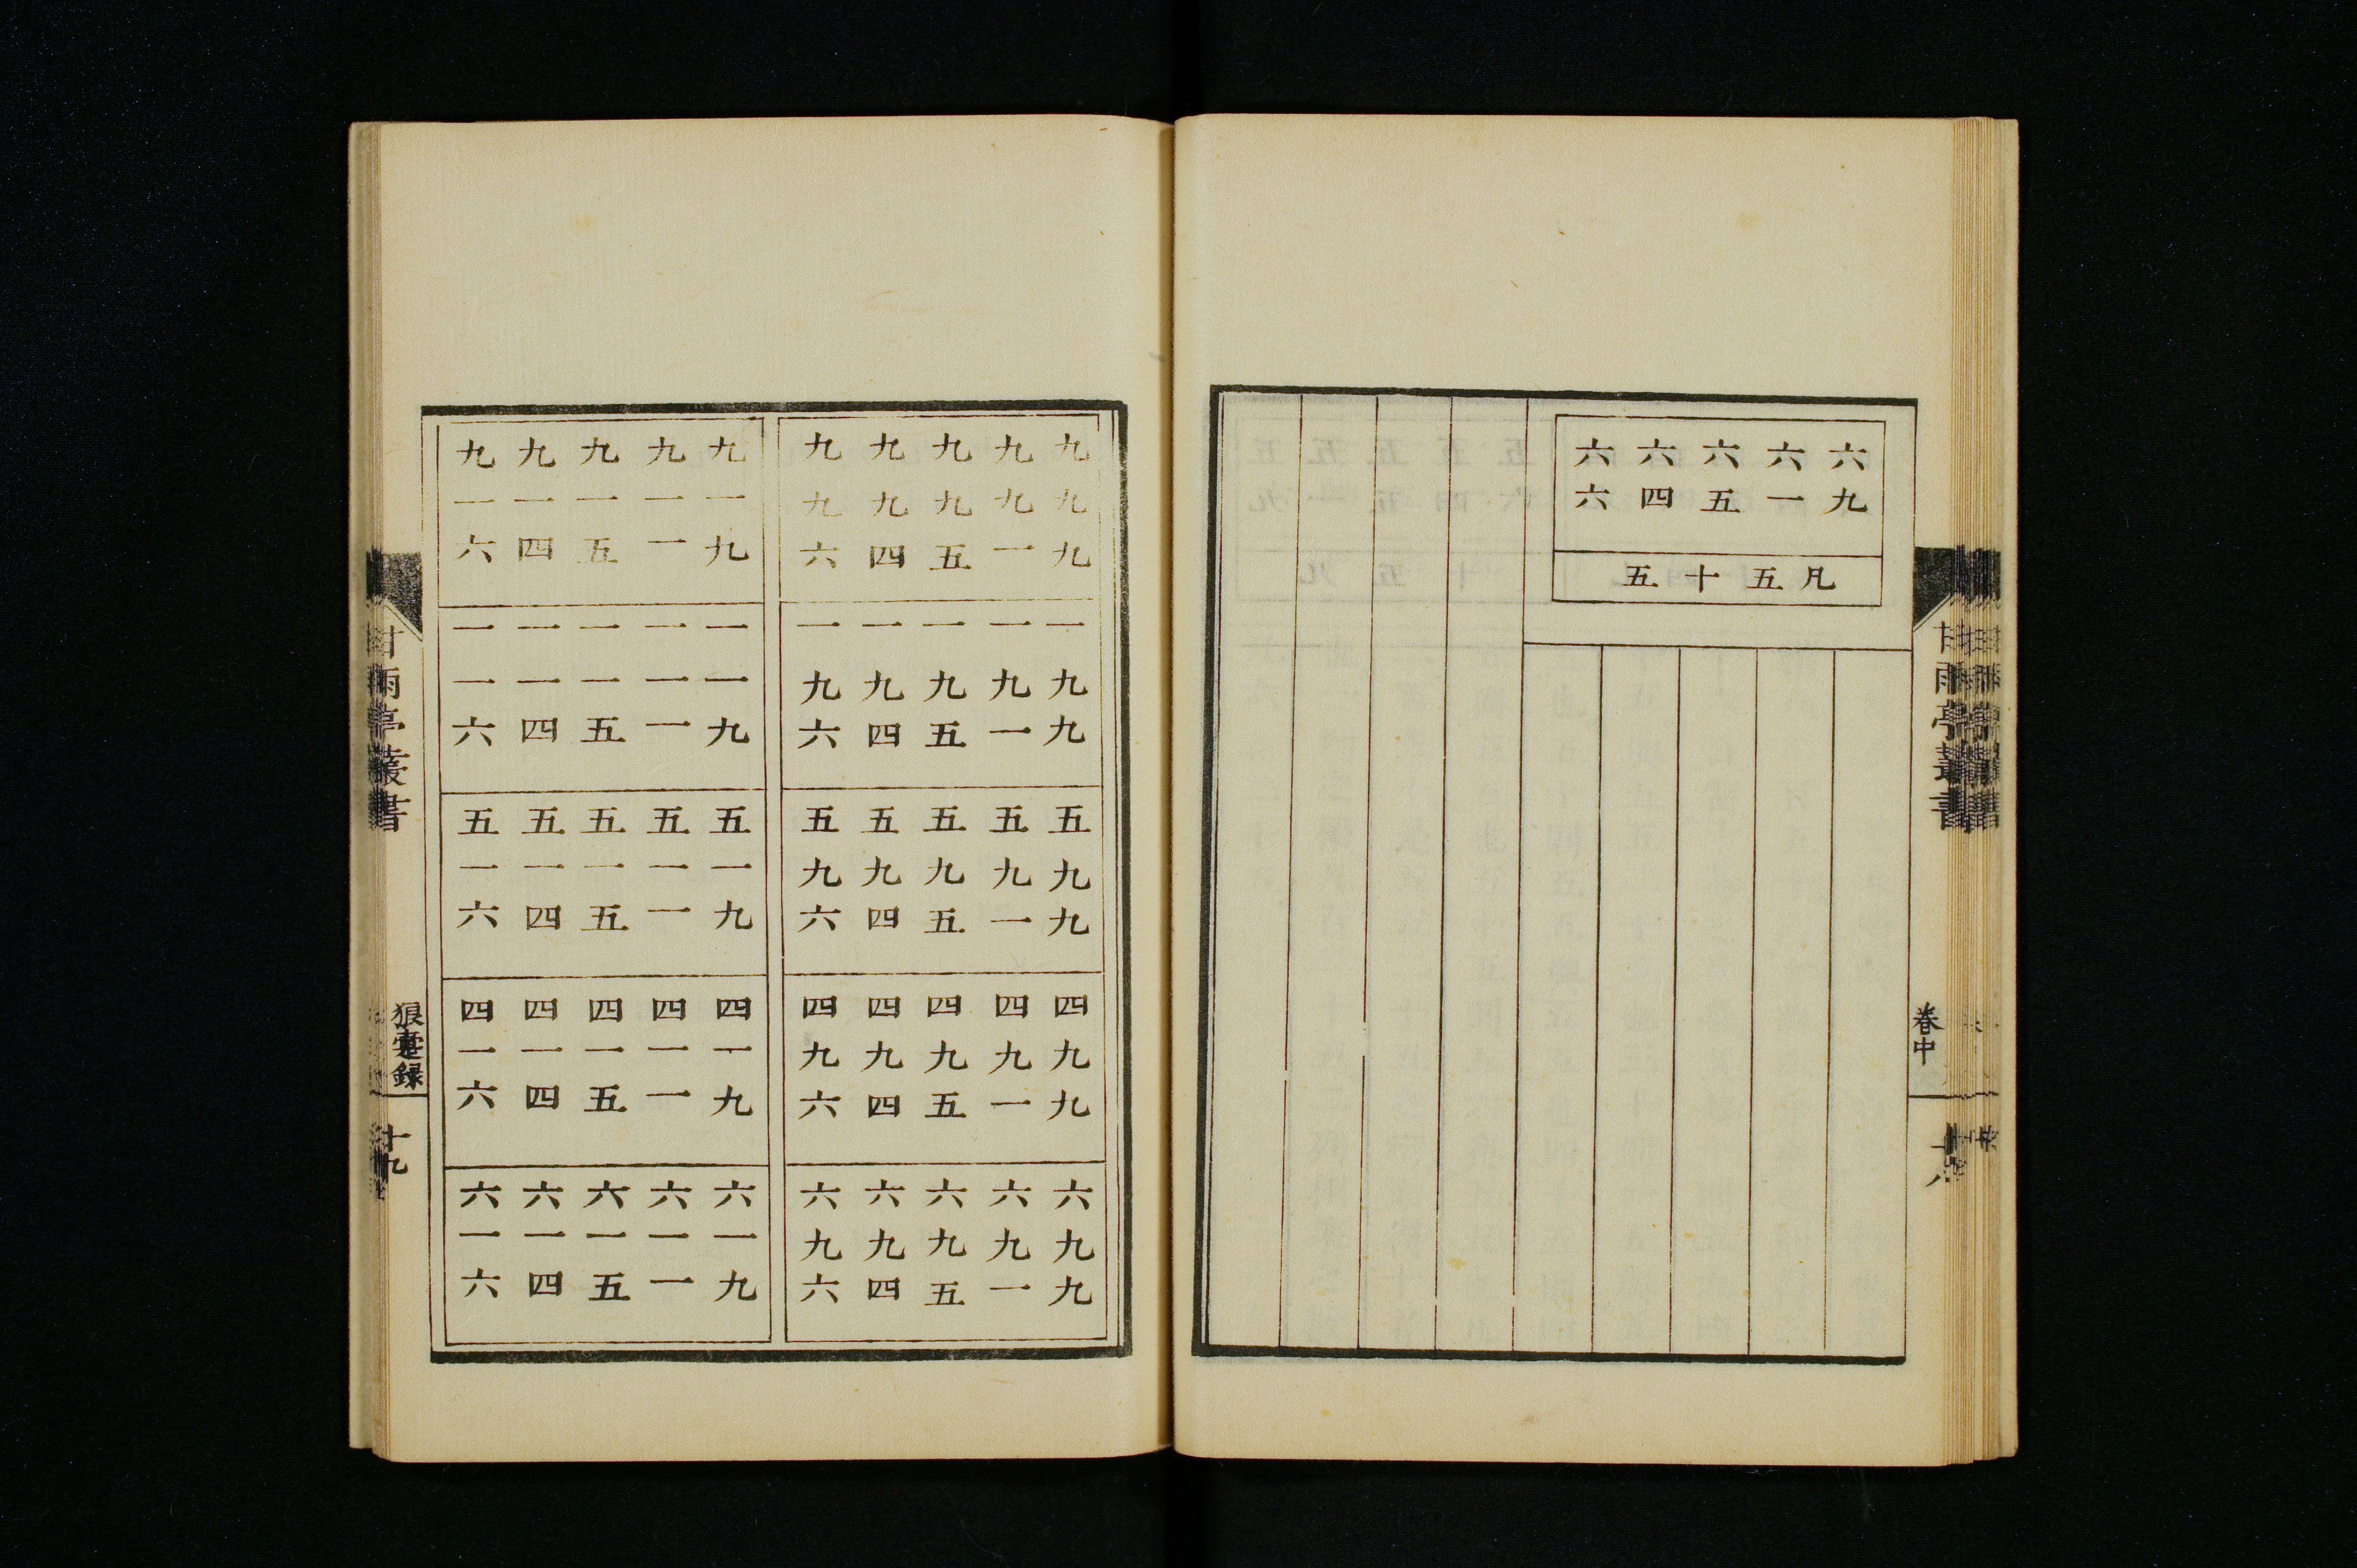 六九
六一
六五
六四
六六
凡五十五
甘雨亭叢書
卷中
十八
九九九
九九一
九九五
九九四
九九六
一九九
一九一
一九五
一九四
一九六
五九九
五九一
五九五
五九四
五九六
四九九
四九一
四九五
四九四
四九六
六九九
六九一
六九五
六九四
六九六
九一九
九一一
九一五
九一四
九一六
一一九
一一一
一一五
一一四
一一六
五一九
五一一
五一五
五一四
五一六
四一九
四一一
四一五
四一四
四一六
六一九
六一一
六一五
六一四
六一六
甘雨亭叢書
狼疐録
十九